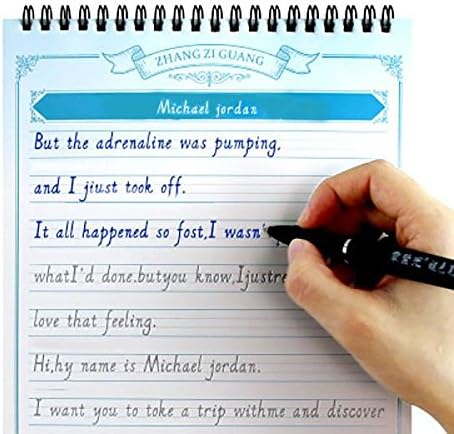 ZHANG ZI GUANG
Michael jordan
But the adrenaline was pumping,
and I jiust took off.
It all happened so fost,I wasn'
whatI'd done.butyou know,Ijustre
love that feeling.
Hi,hy name is Michael jordan.
I want you to toke a trip withme and discover